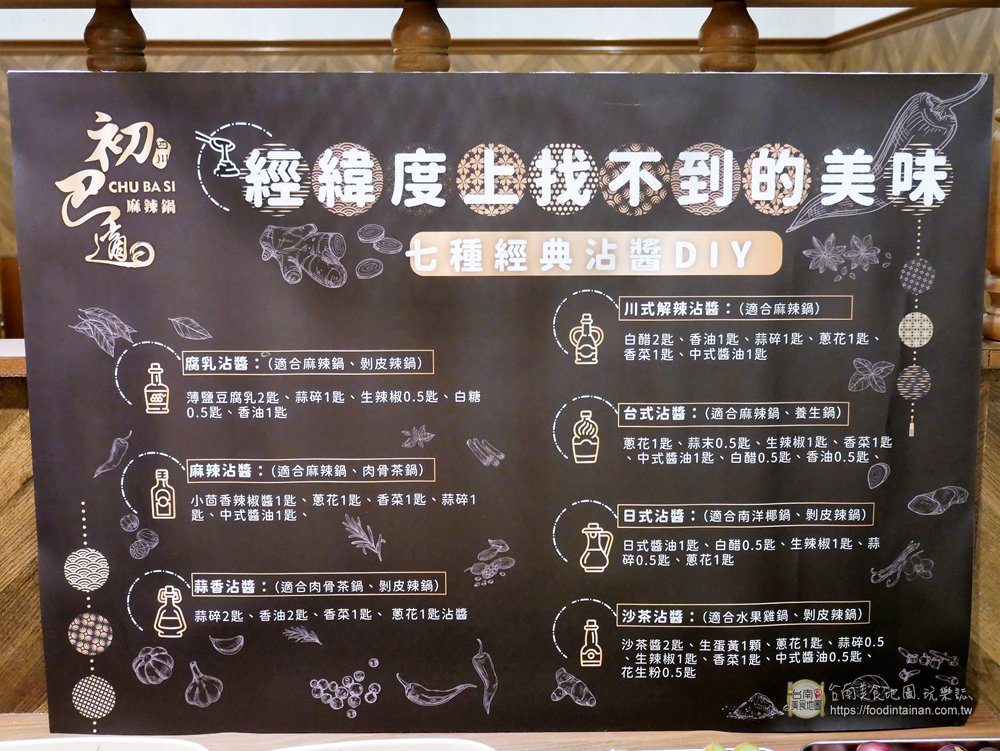 初巴適
四川
CHU BA SI
麻辣鍋
經緯度上找不到的美味
七種經典沾醬DIY
腐乳沾醬：（適合麻辣鍋、剝皮辣鍋）
薄鹽豆腐乳2匙、蒜碎1匙、生辣椒0.5匙、白糖
0.5匙、香油1匙
麻辣沾醬：（適合麻辣鍋、肉骨茶鍋）
小茴香辣椒醬1匙、蔥花1匙、香菜1匙、蒜碎1
匙、中式醬油1匙、
蒜香沾醬：（適合肉骨茶鍋、剝皮辣鍋）
蒜碎2匙、香油2匙、香菜1匙、蔥花1匙沾醬
川式解辣沾醬：（適合麻辣鍋）
白醋2匙、香油1匙、蒜碎1匙、蔥花1匙、
香菜1匙、中式醬油1匙
台式沾醬：（適合麻辣鍋、養生鍋）
蔥花1匙、蒜末0.5匙、生辣椒1匙、香菜1匙
、中式醬油1匙、白醋0.5匙、香油0.5匙、
日式沾醬：（適合南洋椰鍋、剝皮辣鍋）
日式醬油1匙、白醋0.5匙、生辣椒1匙、蒜
碎0.5匙、蔥花1匙
沙茶沾醬：（適合水果雞鍋、剝皮辣鍋）
沙茶醬2匙、生蛋黃1顆、蔥花1匙、蒜碎0.5
、生辣椒1匙、香菜1匙、中式醬油0.5匙、
花生粉0.5匙
台南
美食地圖
台南美食地圖.玩樂誌
https://foodintainan.com.tw